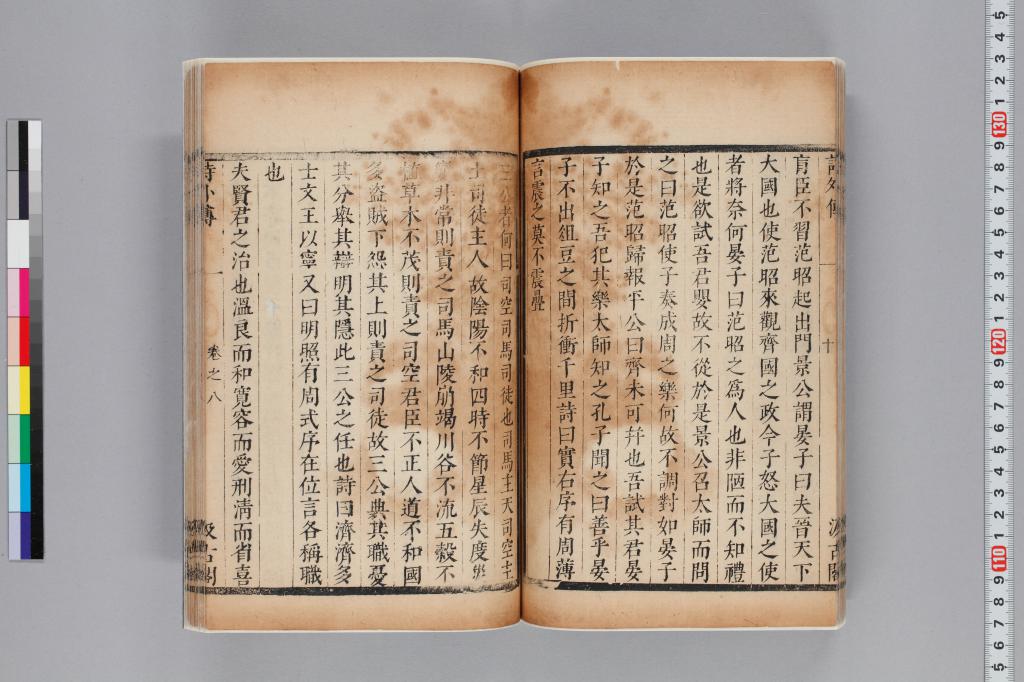 詩外傳
十
汲古閣
肓臣不習范昭起出門景公謂晏子曰夫晉天下
大國也使范昭來觀齊國之政今子怒大國之使
者將奈何晏子曰范昭之爲人也非陋而不知禮
也是欲試吾君嬰故不從於是景公召太師而問
之曰范昭使子奏成周之樂何故不調對如晏子
於是范昭歸報平公曰齊未可幷也吾試其君晏
子知之吾犯其樂太師知之孔子聞之曰善乎晏
子不出俎豆之間折衝千里詩曰實右序有周薄
言震之莫不震疊
三公者何曰司空司馬司徒也司馬主天司空主
土司徒主人故陰陽不和四時不節星辰失度災
變非常則責之司馬山陵崩竭川谷不流五穀不
植草木不茂則責之司空君臣不正人道不和國
多盜賊下怨其上則責之司徒故三公典其職憂
其分舉其辯明其隱此三公之任也詩曰濟濟多
士文王以寧又曰明照有周式序在位言各稱職
也
夫賢君之治也溫良而和寬容而愛刑清而省喜
詩外傳
卷之八
汲古閣
5
4
3
2
1
130
9
8
7
6
5
4
3
2
1
120
9
8
7
6
5
4
3
2
1
110
9
8
7
6
5